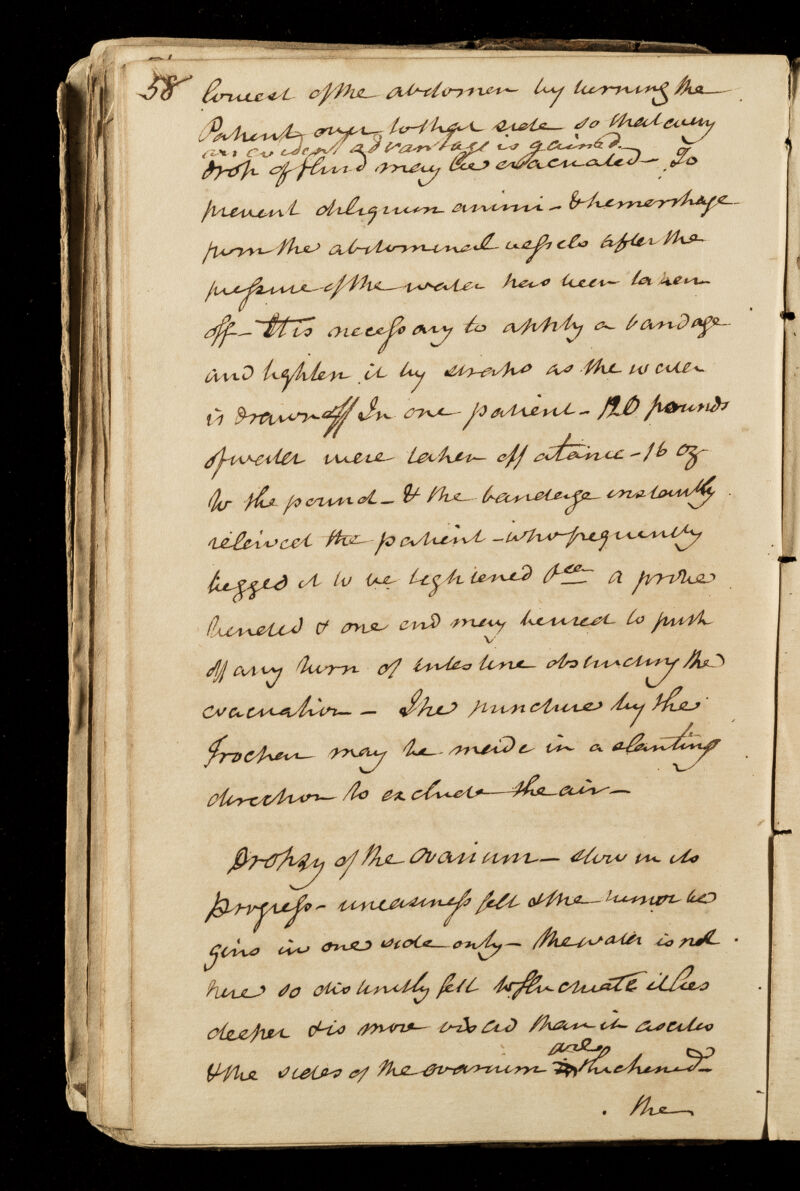 58
lowest of the abdomen by turning the
Patient over to that side so that every
an evident advantage is gained
drop of fluid may be evacuated – To
prevent deliquium animi – & hemorrhage
from the abdominal vessels after the
pressure of the water has been taken
off – It is necessary to apply a bandage
and tighten it by straps as the water
is drawn off In one patient – 120 pounds
of water were taken off at once – 16 oz
to the pound – & the bandage instantly
releived the patient – who frequently
begged it to be tightened &ca a probe
bended & one end may be used to push
off any turn of intestine obstructing the
evacuation – The puncture by the
Trochar may be made in a slanting
direction to exclude the air –
Dropsy of the Ovarium – slow in its
Progress – uneasiness felt & the tumor be
gins in one side only – the water is not
here so distinctly felt to fluctuate it lies
deeper & is more viscid than in ascites
are
& the sides of the ovarium thickened –
the